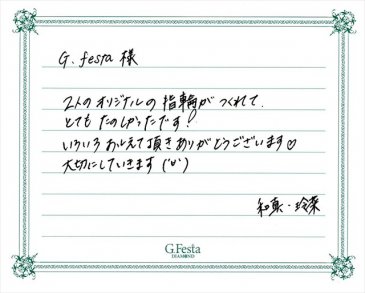 G.festa 様
2人のオリジナルの指輪がつくれて、
とても たのしかったです!
いろいろ おしえて頂き ありがとうございます♡
大切にしていきます ('ω')
和泉・玲菜
G.Festa
DIAMOND